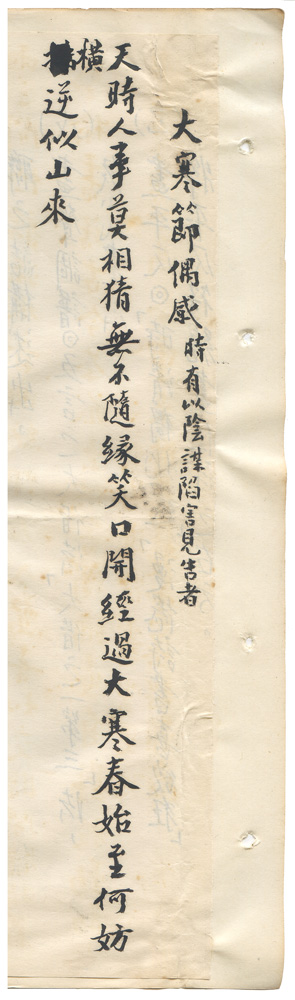 大寒節偶感時有以陰謀陷害見告者
天時人事莫相猜無不隨緣笑口開經過大寒春始至何妨
橫逆似山來